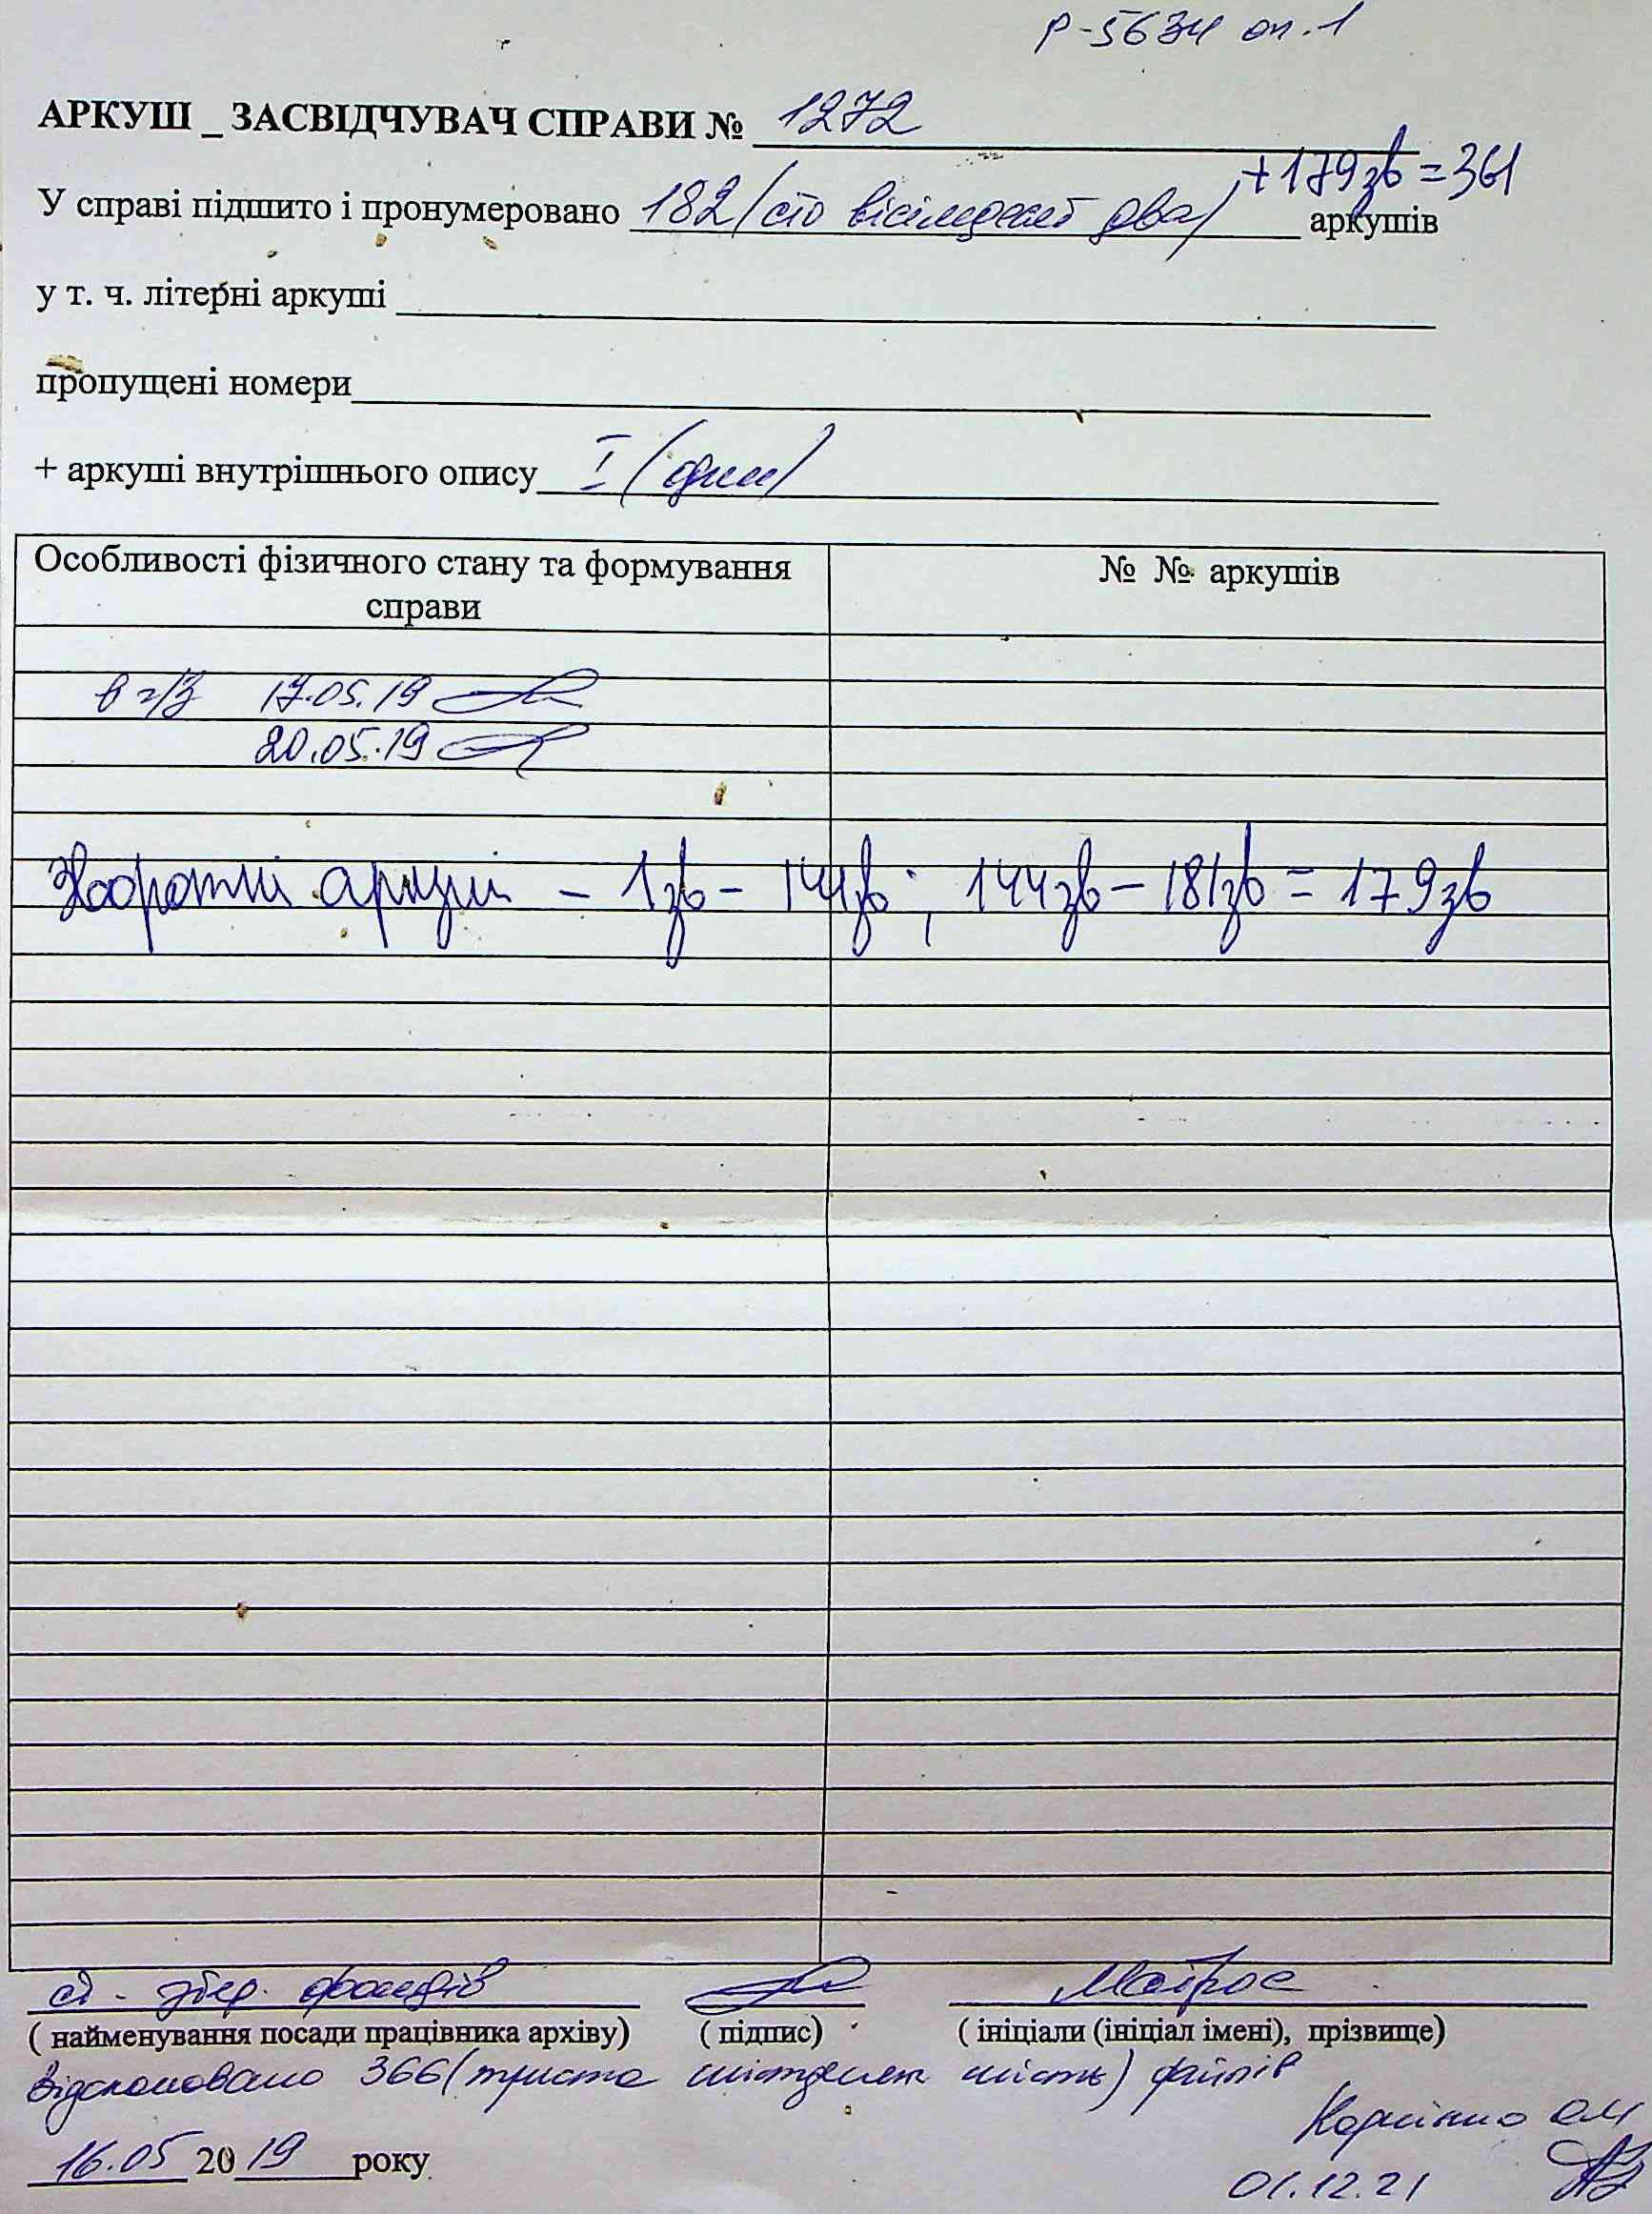 Р-5634 оп.1
АРКУШ _ ЗАСВІДЧУВАЧ СПРАВИ № 1272
+179зв = 361
У справі підшито і пронумеровано 182 (сто вісімдесят два) аркушів
у т. ч. літерні аркуші
пропущені номери
+ аркуші внутрішнього опису I (один)
Особливості фізичного стану та формування справи
№ № аркушів
в г/з 17.05.19
20.05.19
аркуші – 1зв – 141зв ; 144зв – 181зв = 179зв
збер. фондів
( найменування посади працівника архіву) ( підпис) ( ініціали (ініціал імені), прізвище)
Відскановано 366 (триста шістдесят шість) файлів
16.05 2019 року
01.12.21